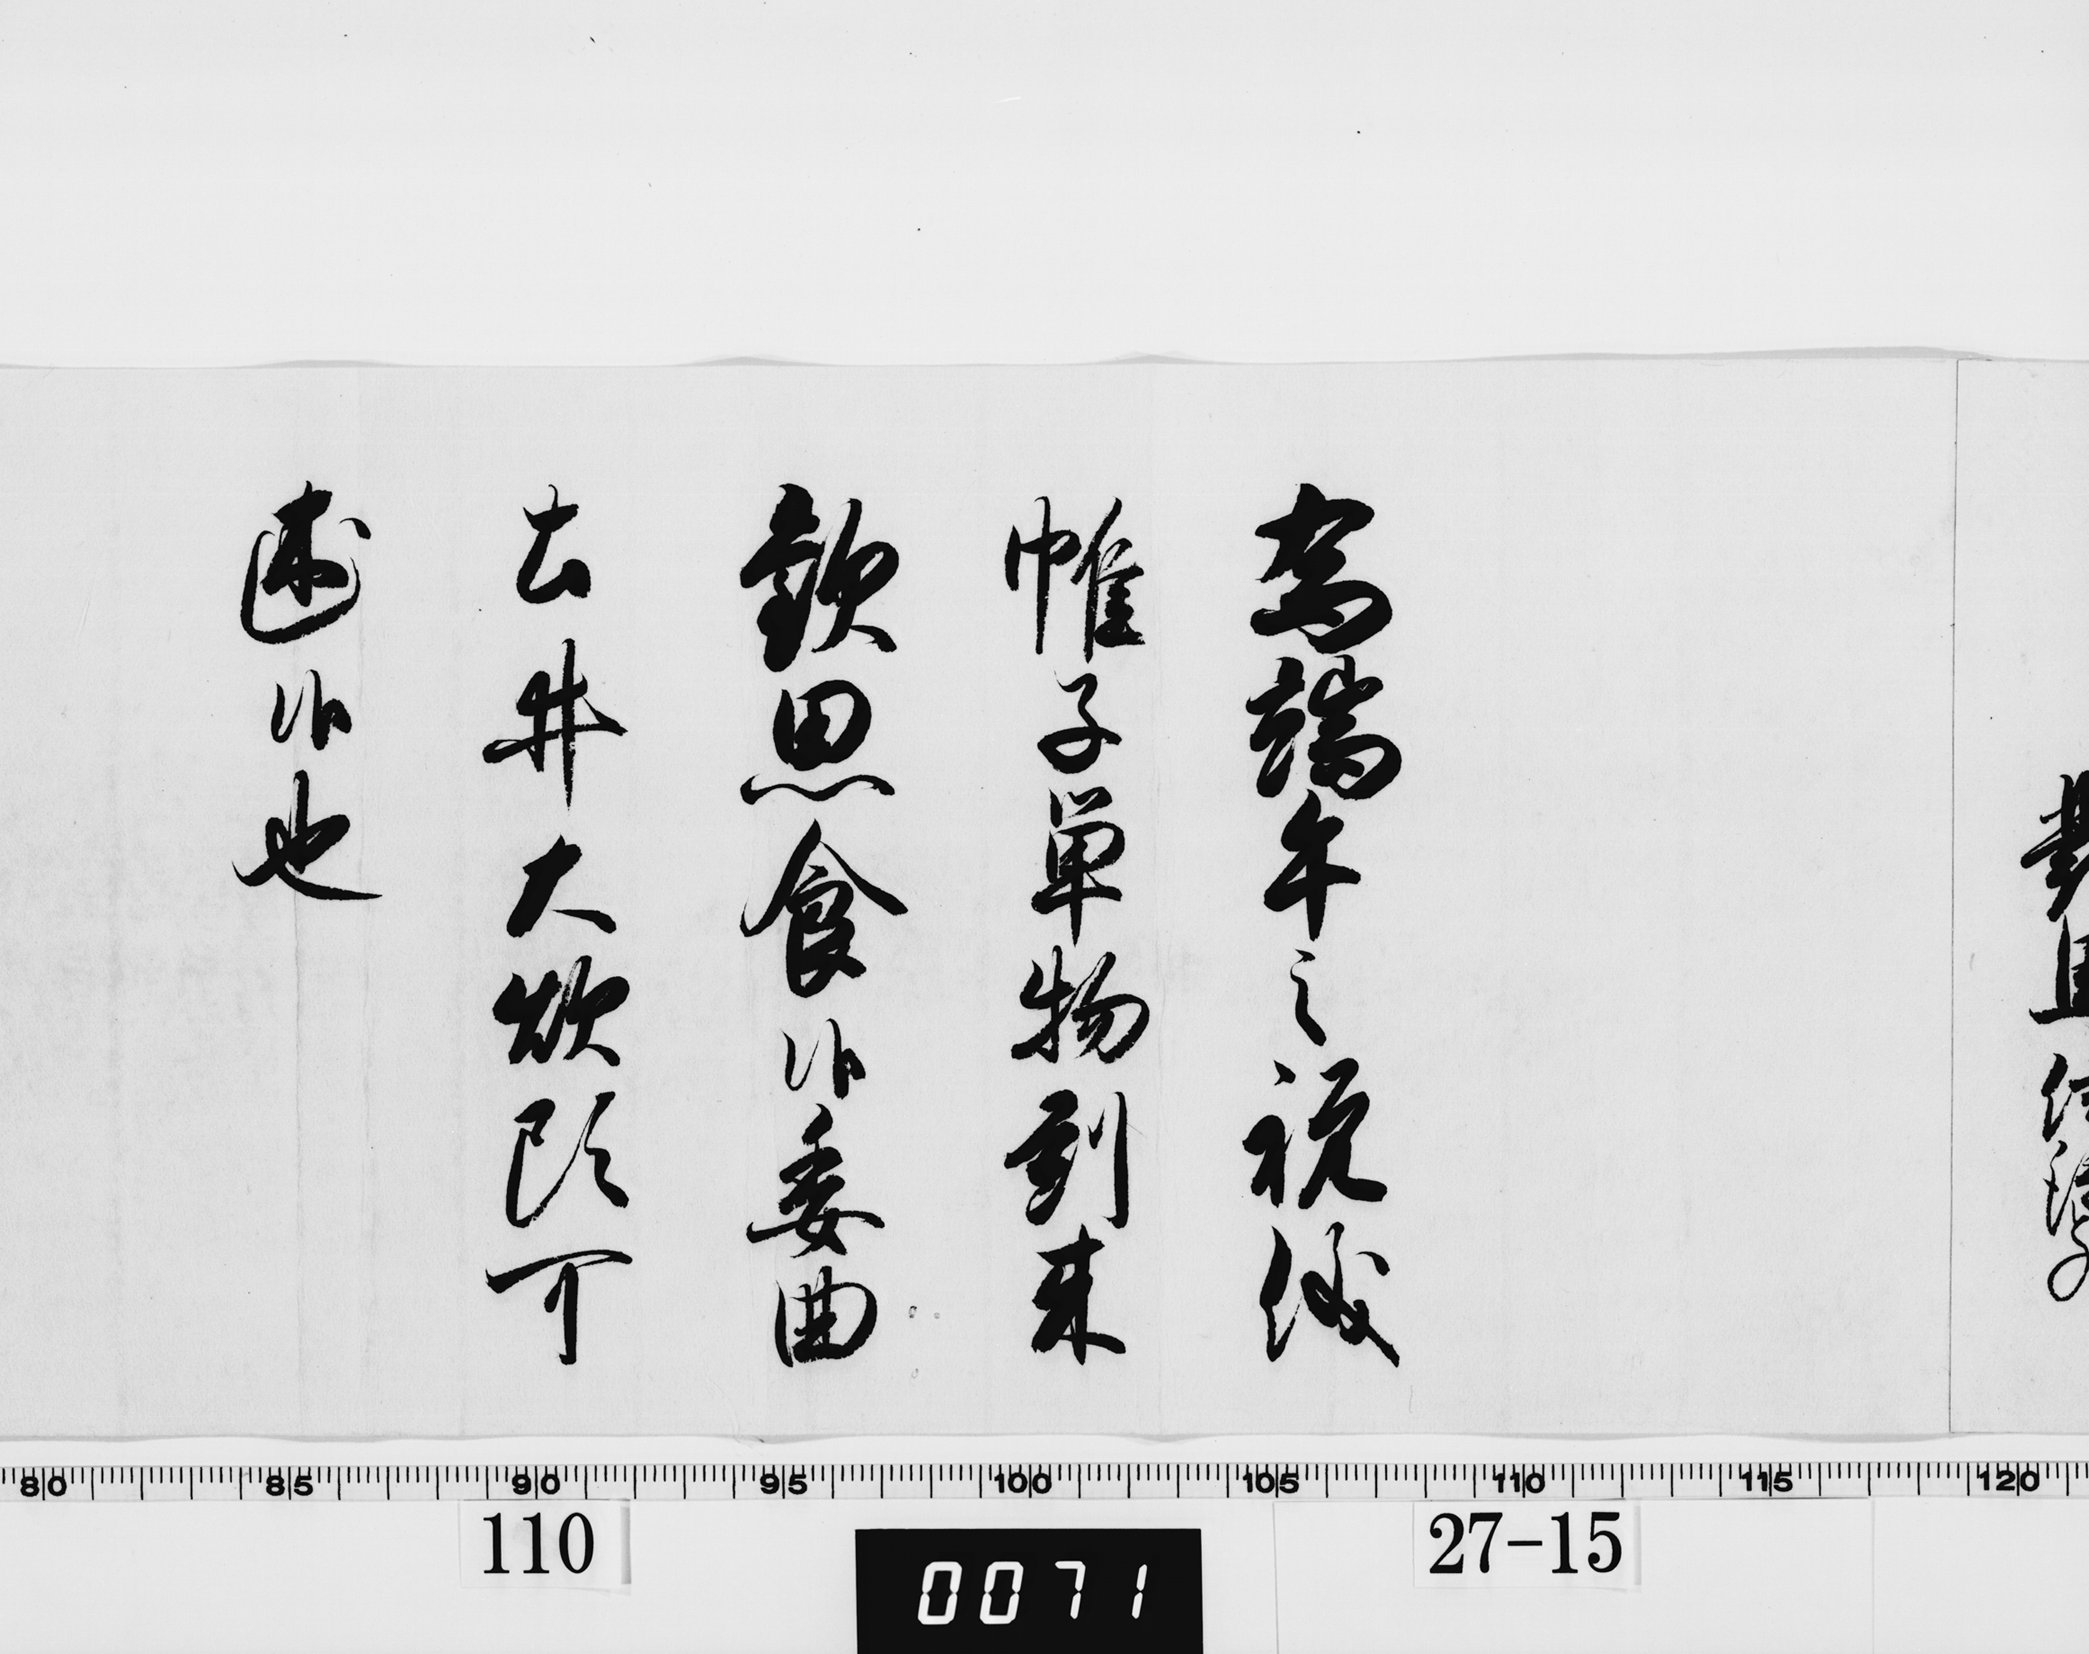 為端午之祝儀
帷子単物到来
歓思食候委曲
土井大炊頭可
述候也
80 85 90 95 100 105 110 115 120
110
0071
27-15